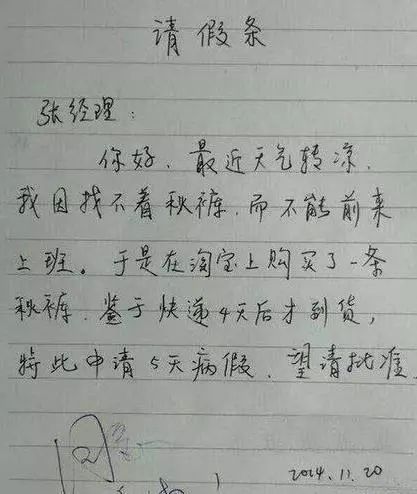 请假条
张经理：
你好，最近天气转凉，
我因找不着秋裤，而不能前来
上班。于是在淘宝上购买了一条
秋裤，鉴于快递4天后才到货，
特此申请5天病假，望请批准。
2014.11.20